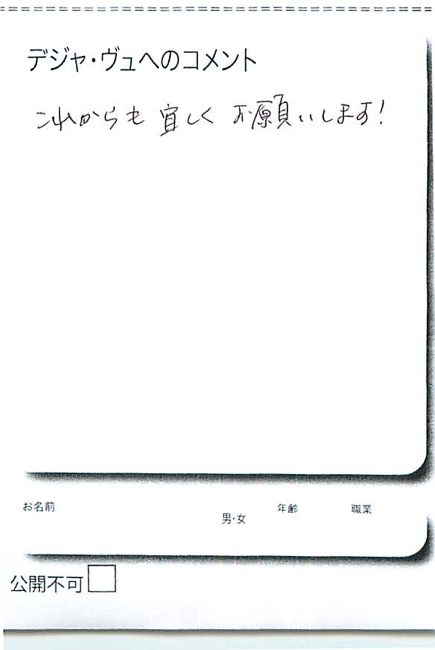 デジャ・ヴュへのコメント
これからも 宜しく お願いします!
お名前
男・女
年齢
職業
公開不可